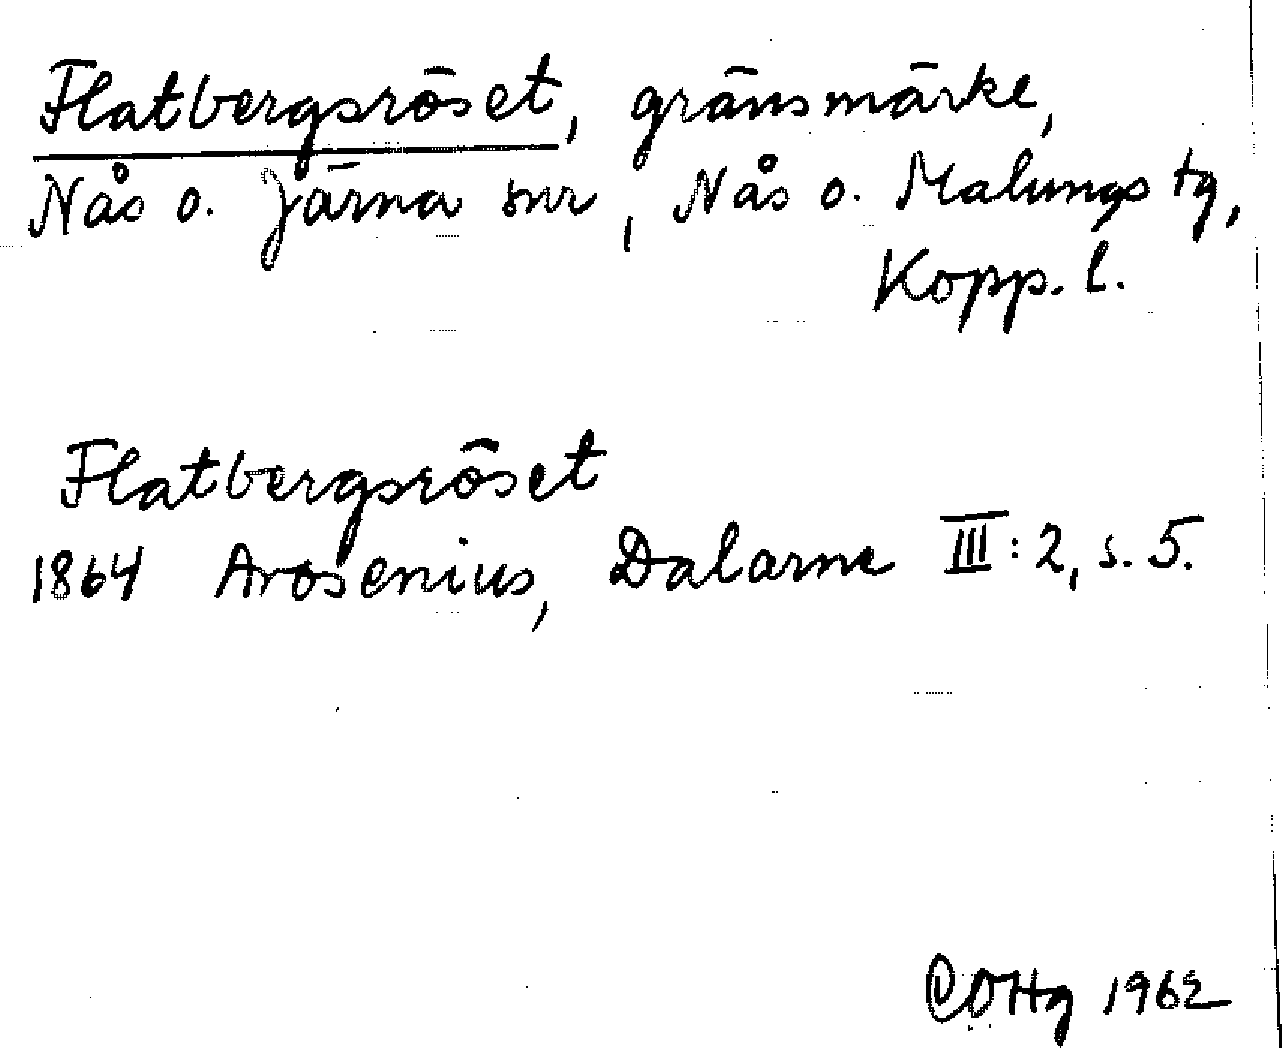 Flatbergsröset, gränsmärke,
Nås o. Järna snr, Nås o. Malungs tg,
Kopp. l.
Flatbergsröset
1864 Arosenius, Dalarne III: 2, s. 5.
COHg 1962